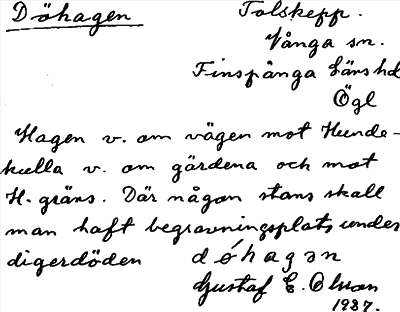 Döhagen
Tolskepp.
Vånga sn.
Finspånga läns hd
Ögl
Hagen v. om vägen mot Hunde-
kulla v. om gärdena och mot
H. gräns. Där någon stans skall
man haft begravningsplats under
digerdöden döhagən
Gustaf E. Olsson
1927.